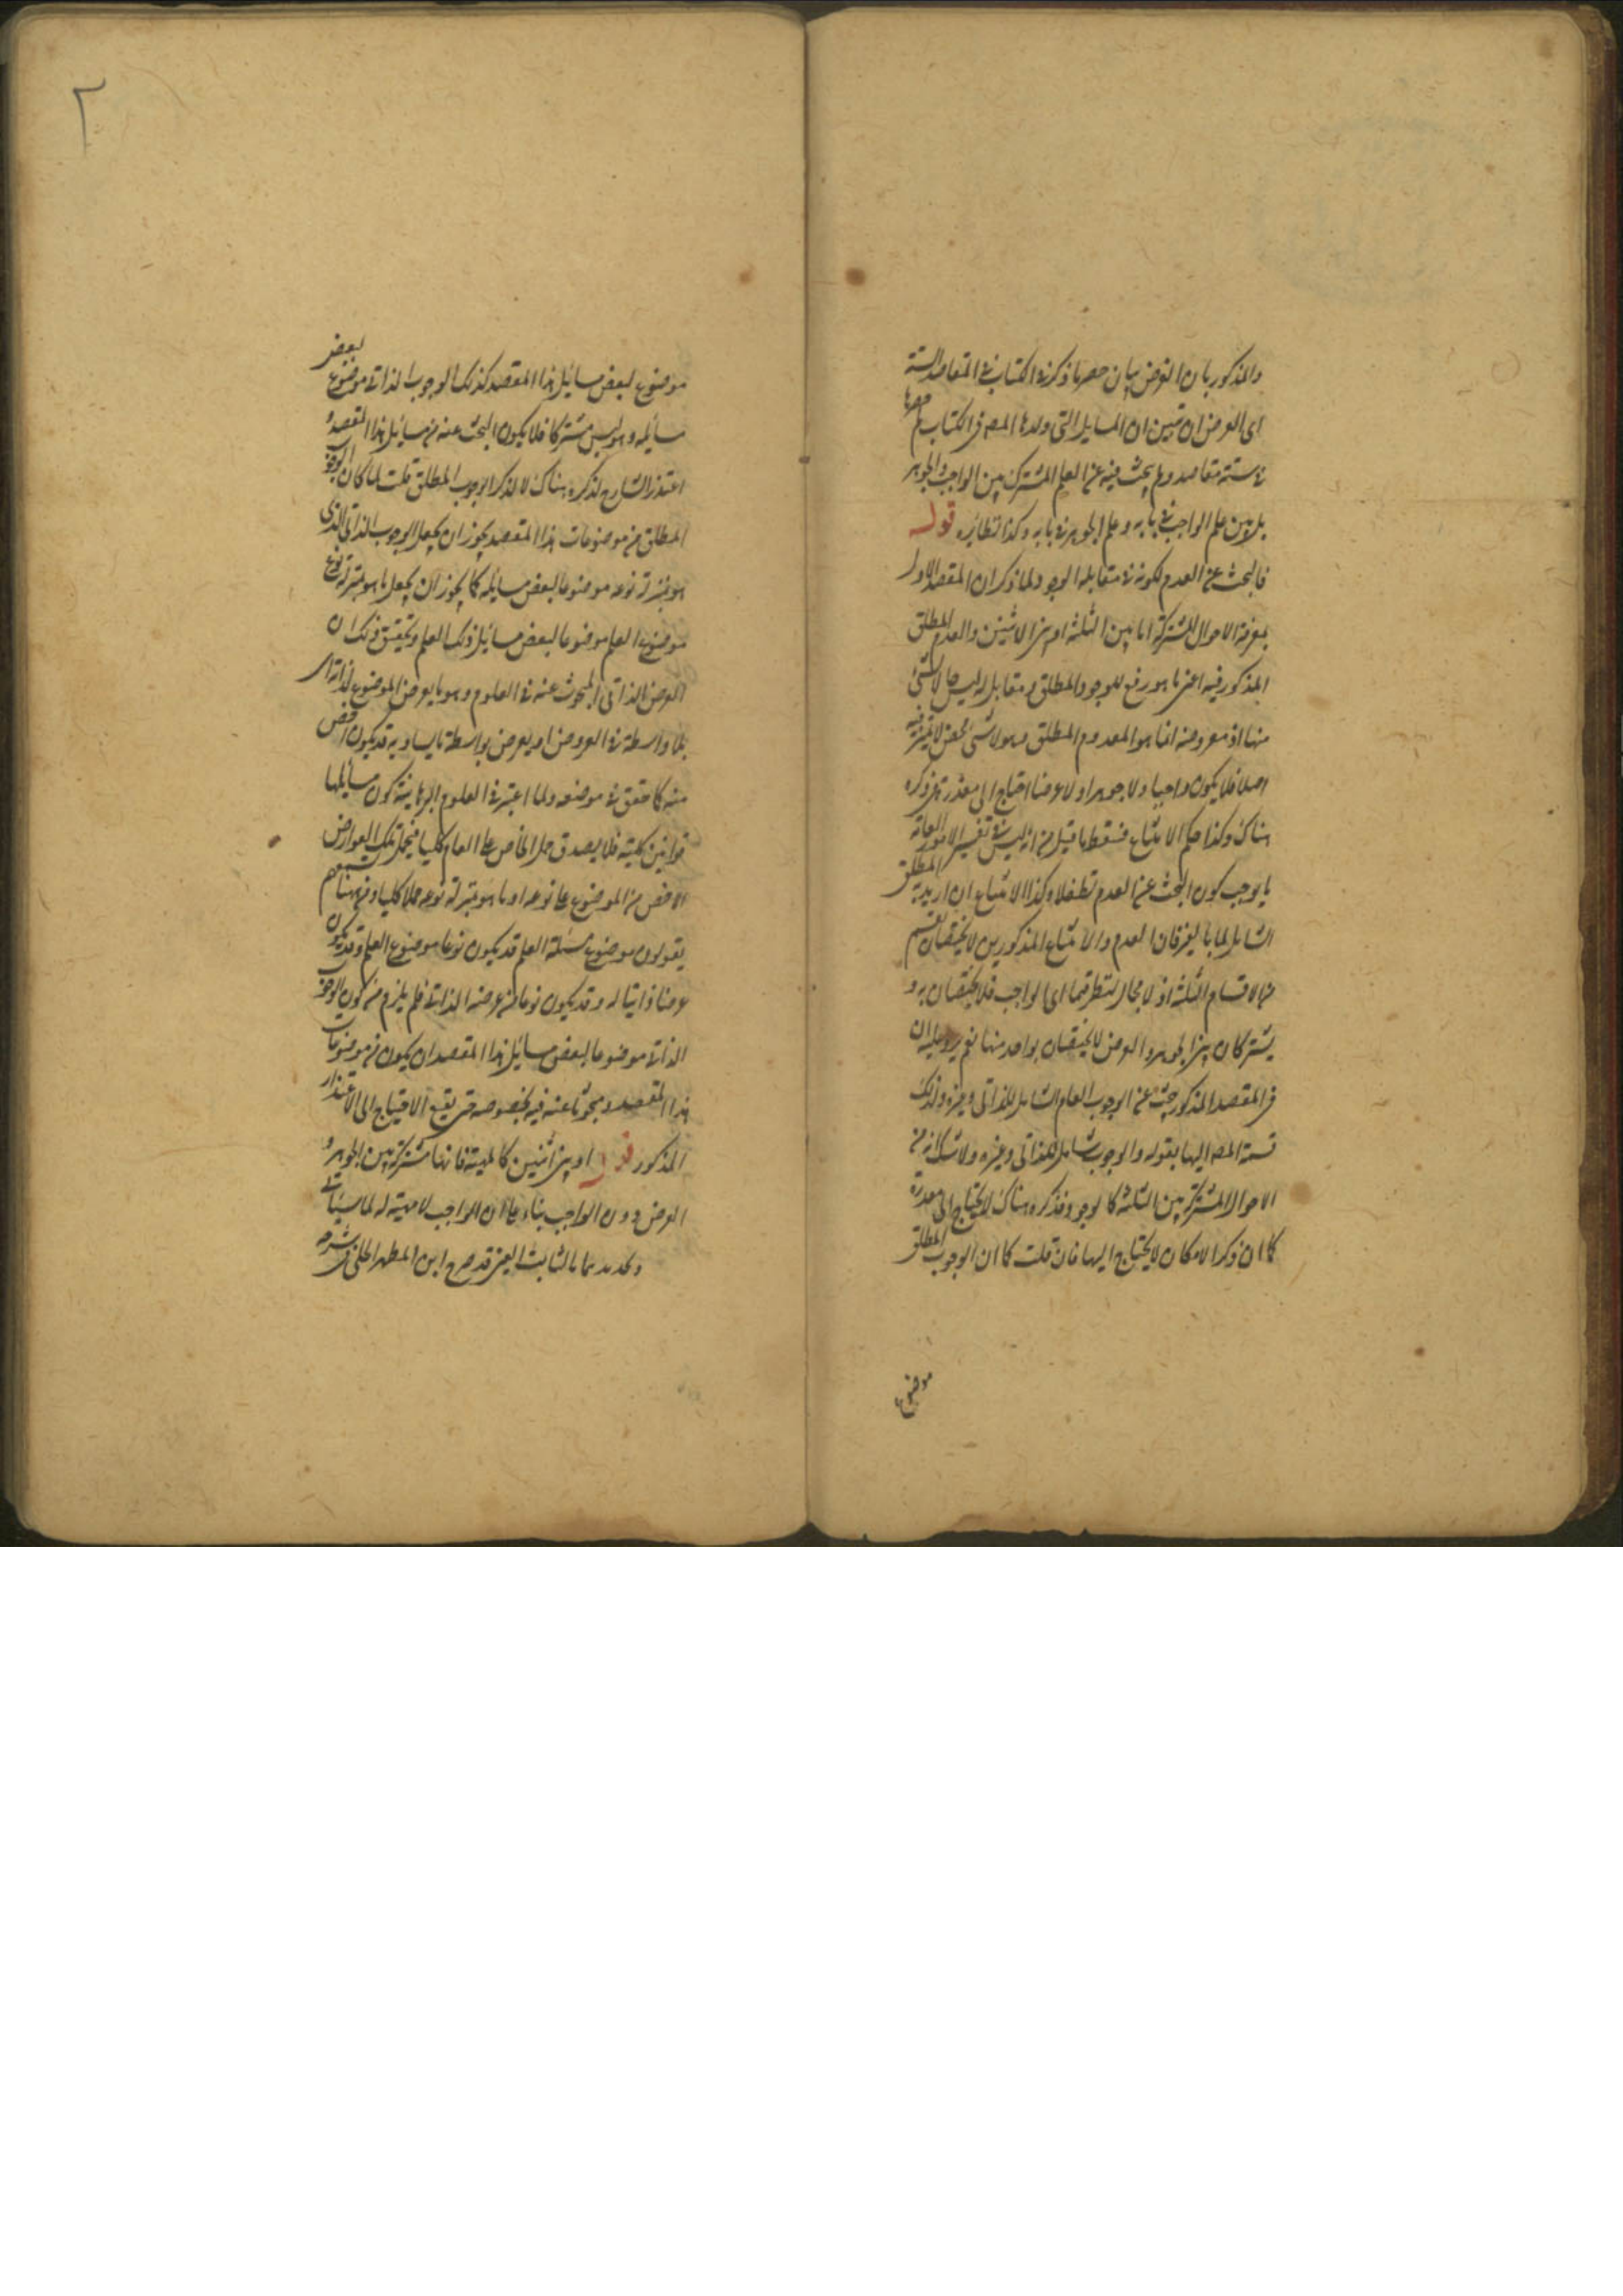 والمذكور بان الغرض بيان حصر ما ذكر فى الكتاب فى المقاصد الستة
اى الغرض ان تبين ان المسايل التى اوردها المصـ فى الكتاب حصرها
فى ستة مقاصد ولم يبحث فيه عن العلم المشترك بين الواجب والجوهر
بل بين علم الواجب فى بابه وعلم الجوهر فى بابه وكذا نظائره قوله
فالبحث عن العدم لكونه فى مقابلة الوجود لما ذكر ان المقصد الاول
لمعرفة الاحوال المشتركة اما بين الثلثة او بين الاثنين والعدم المطلق
المذكور فيه اعنى ما هو رفع للوجود المطلق ومقابل له ليس حالا لشئ
منها اذ معروضه انما هو المعدوم المطلق وهو لا شئ محض لا تميز فيه
اصلا فلا يكون واجبا ولا جوهرا ولا عرضا احتاج الى معذرة فى ذكره
هناك وكذا حكم الامتناع فسقط ما قيل من انه ليس فى تفسير الامور العامة
ما يوجب كون البحث عن العدم تطفلا وكذا الامتناع ان اريد به المطلق
الشامل لما بالغير فان العدم والامتناع المذكورين لا يختصان بقسم
من الاقسام الثلثة اذ لا مجال لتطرقهما الى الواجب فلا يختصان به و
يشتركان بين الجوهر والعرض لا يختصان بواحد منهما نعم يرد عليه ان
فى المقصد المذكور بحث عن الوجوب العام الشامل للذاتى وغيره ولذلك
قسمه المصـ اليهما بقوله والوجوب شامل للذاتى وغيره ولا شك انه من
الاحوال المشتركة بين الثلثة كالوجود فذكره هناك لا يحتاج الى معذرة
كما ان ذكر الامكان لا يحتاج اليها فان قلت كما ان الوجوب المطلق
موضوع
موضوع لبعض مسائل هذا المقصد كذلك الوجوب الذاتى موضوع لبعض
مسائله وهو ليس مشتركا فلا يكون البحث عنه من مسائل هذا المقصد و
اعتذر الشارح لذكره هناك لا لذكر الوجوب المطلق قلت لما كان الوجوب
المطلق من موضوعات هذا المقصد يجوز ان يجعل الوجوب الذاتى الذى
هو بمنزلة نوعه موضوعا لبعض مسائله كما يجوز ان يجعل ما هو بمنزلة نوع
موضوع العلم موضوعا لبعض مسائل ذلك العلم وتحقيق ذلك ان
العرض الذاتى المبحوث عنه فى العلوم وهو ما يعرض الموضوع لذاته اى
بلا واسطة فى العروض او يعرض بواسطة ما يساويه قد يكون اخص
منه كما حقق فى موضعه ولما اعتبر فى العلوم البرهانية كون مسائلها
قوانين كلية فلا يصدق حمل الخاص على العام كليا فيحمل تلك العوارض
الاخص من الموضوع على نوعه او ما هو بمنزلة نوعه حملا كليا ومن هنا تسمعهم
يقولون موضوع مسئلة العلم قد يكون نوعا من موضوع العلم وقد يكون
عرضا ذاتيا له وقد يكون نوعا من عرضه الذاتى فلم يلزم من كون الوجوب
الذاتى موضوعا لبعض مسائل هذا المقصد ان يكون من موضوعات
هذا المقصد ومبحوثا عنه فيه بخصوصه حتى يقع الاحتياج الى الاعتذار
المذكور قوله او بين اثنين كالماهية فانها مشتركة بين الجوهر و
العرض دون الواجب بناء على ان الواجب لا مهية له لما سيأتى
وتحديدهما بالثابت العين قد صرح ابن المطهر الحلى فى شرحه